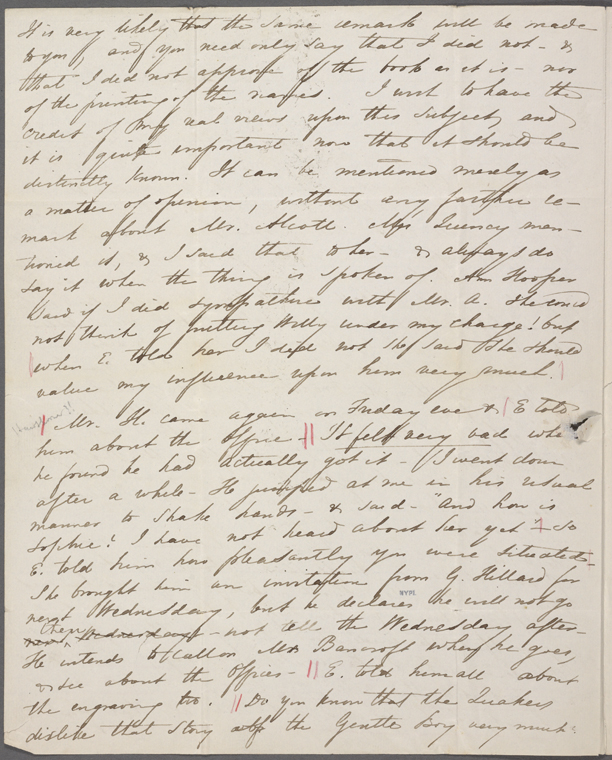 It is very likely that the same remark will be made
to you, and you need only say that I did not - &
that I did not approve of the book as it is - nor
of the printing of the names. I wish to have the
credit of my real views upon this subject, and
it is quite important now that it should be
distinctly known. It can be mentioned merely as
a matter of opinion, without any farther re-
mark about Mr. Alcott. Mrs Quincy men-
tioned it, & I said that to her - & always do
say it when the thing is spoken of. Ann Hooper
said if I did sympathise with Mr. A. she could
not think of putting Willy under my charge! but
when E. told her I did not she said she should
value my influence upon him very much.
Mr. H. came again on Friday eve & E told
him about the office - It fell very bad whe
he found he had actually got it - (I went down
after a while - He jumped at me in his usual
manner to shake hands - & said - "And how is
Sophie? I have not heard about her yet" - So
E. told him how pleasantly you were situated -
She brought him an invitation from G. Hillard for
next Wednesday, but he declares he will not go
then, - not till the Wednesday after -
He intends to call on Mr Bancroft when he goes,
& see about the offices - E. told him all about
the engraving too. Do you know that the Quakers
dislike that Story of the Gentle Boy very much
NYPL